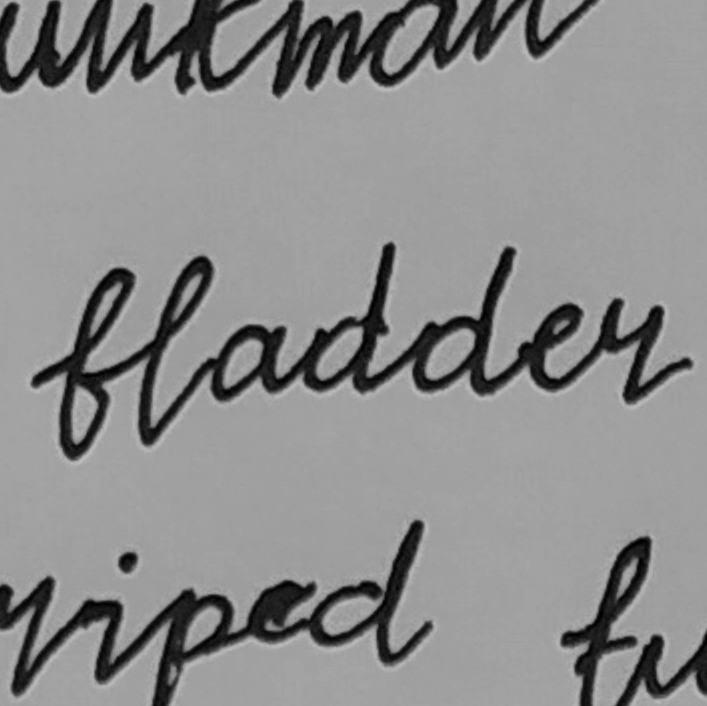 unkman
fladder
riped fu